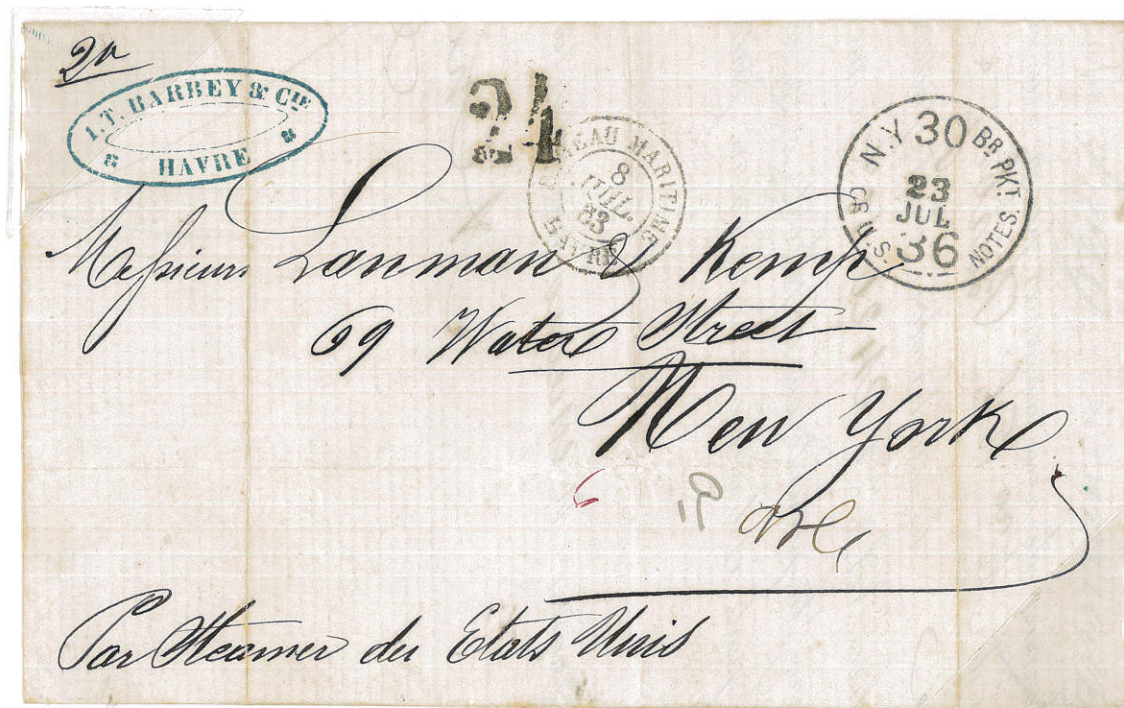 I.T. BARBEY & CIE
HAVRE
24
BUREAU MARITIME
8
JUIL.
63
HAVRE
N.Y 30 BR PKT.
23
JUL
OR U.S. 36 NOTES.
Messieurs Lanman & Kemp
69 Water Street
New York
Par Steamer des Etats Unis